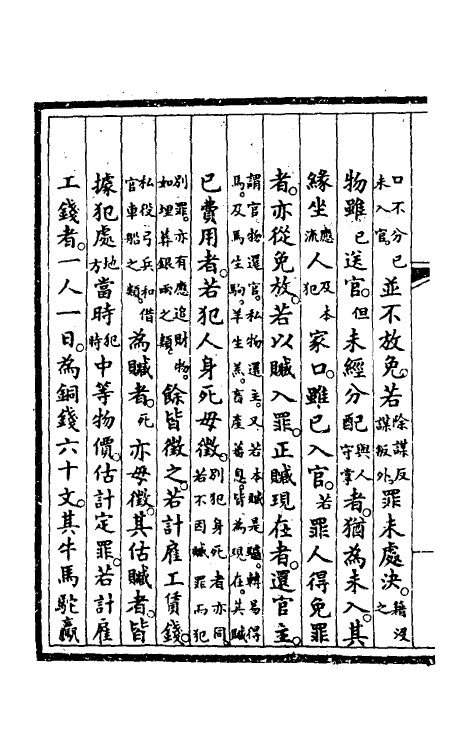 口不分已未入官並不放免。若除謀反謀叛外罪未處決。籍沒之
物雖已送官。但未經分配與人守掌者。猶為未入。其
緣坐應流人及本犯家口。雖已入官。若罪人得免罪
者。亦從免放。若以贓入罪。正贓現在者。還官主。
謂官物還官。私物還主。又若本贓是驢。轉易得馬。及馬生駒。羊生羔。畜產蕃息。皆為現在。其贓
已費用者。若犯人身死毋徵。別犯身死者亦同。若不因贓罪而犯
別罪。亦有應追財物。如埋葬銀兩之類。餘皆徵之。若計雇工賃錢。
私役弓兵和借官車船之類。為贓者。死亦毋徵。其估贓者。皆
據犯處地方當時犯時中等物價。估計定罪。若計雇
工錢者。一人一日。為銅錢六十文。其牛馬駝驘